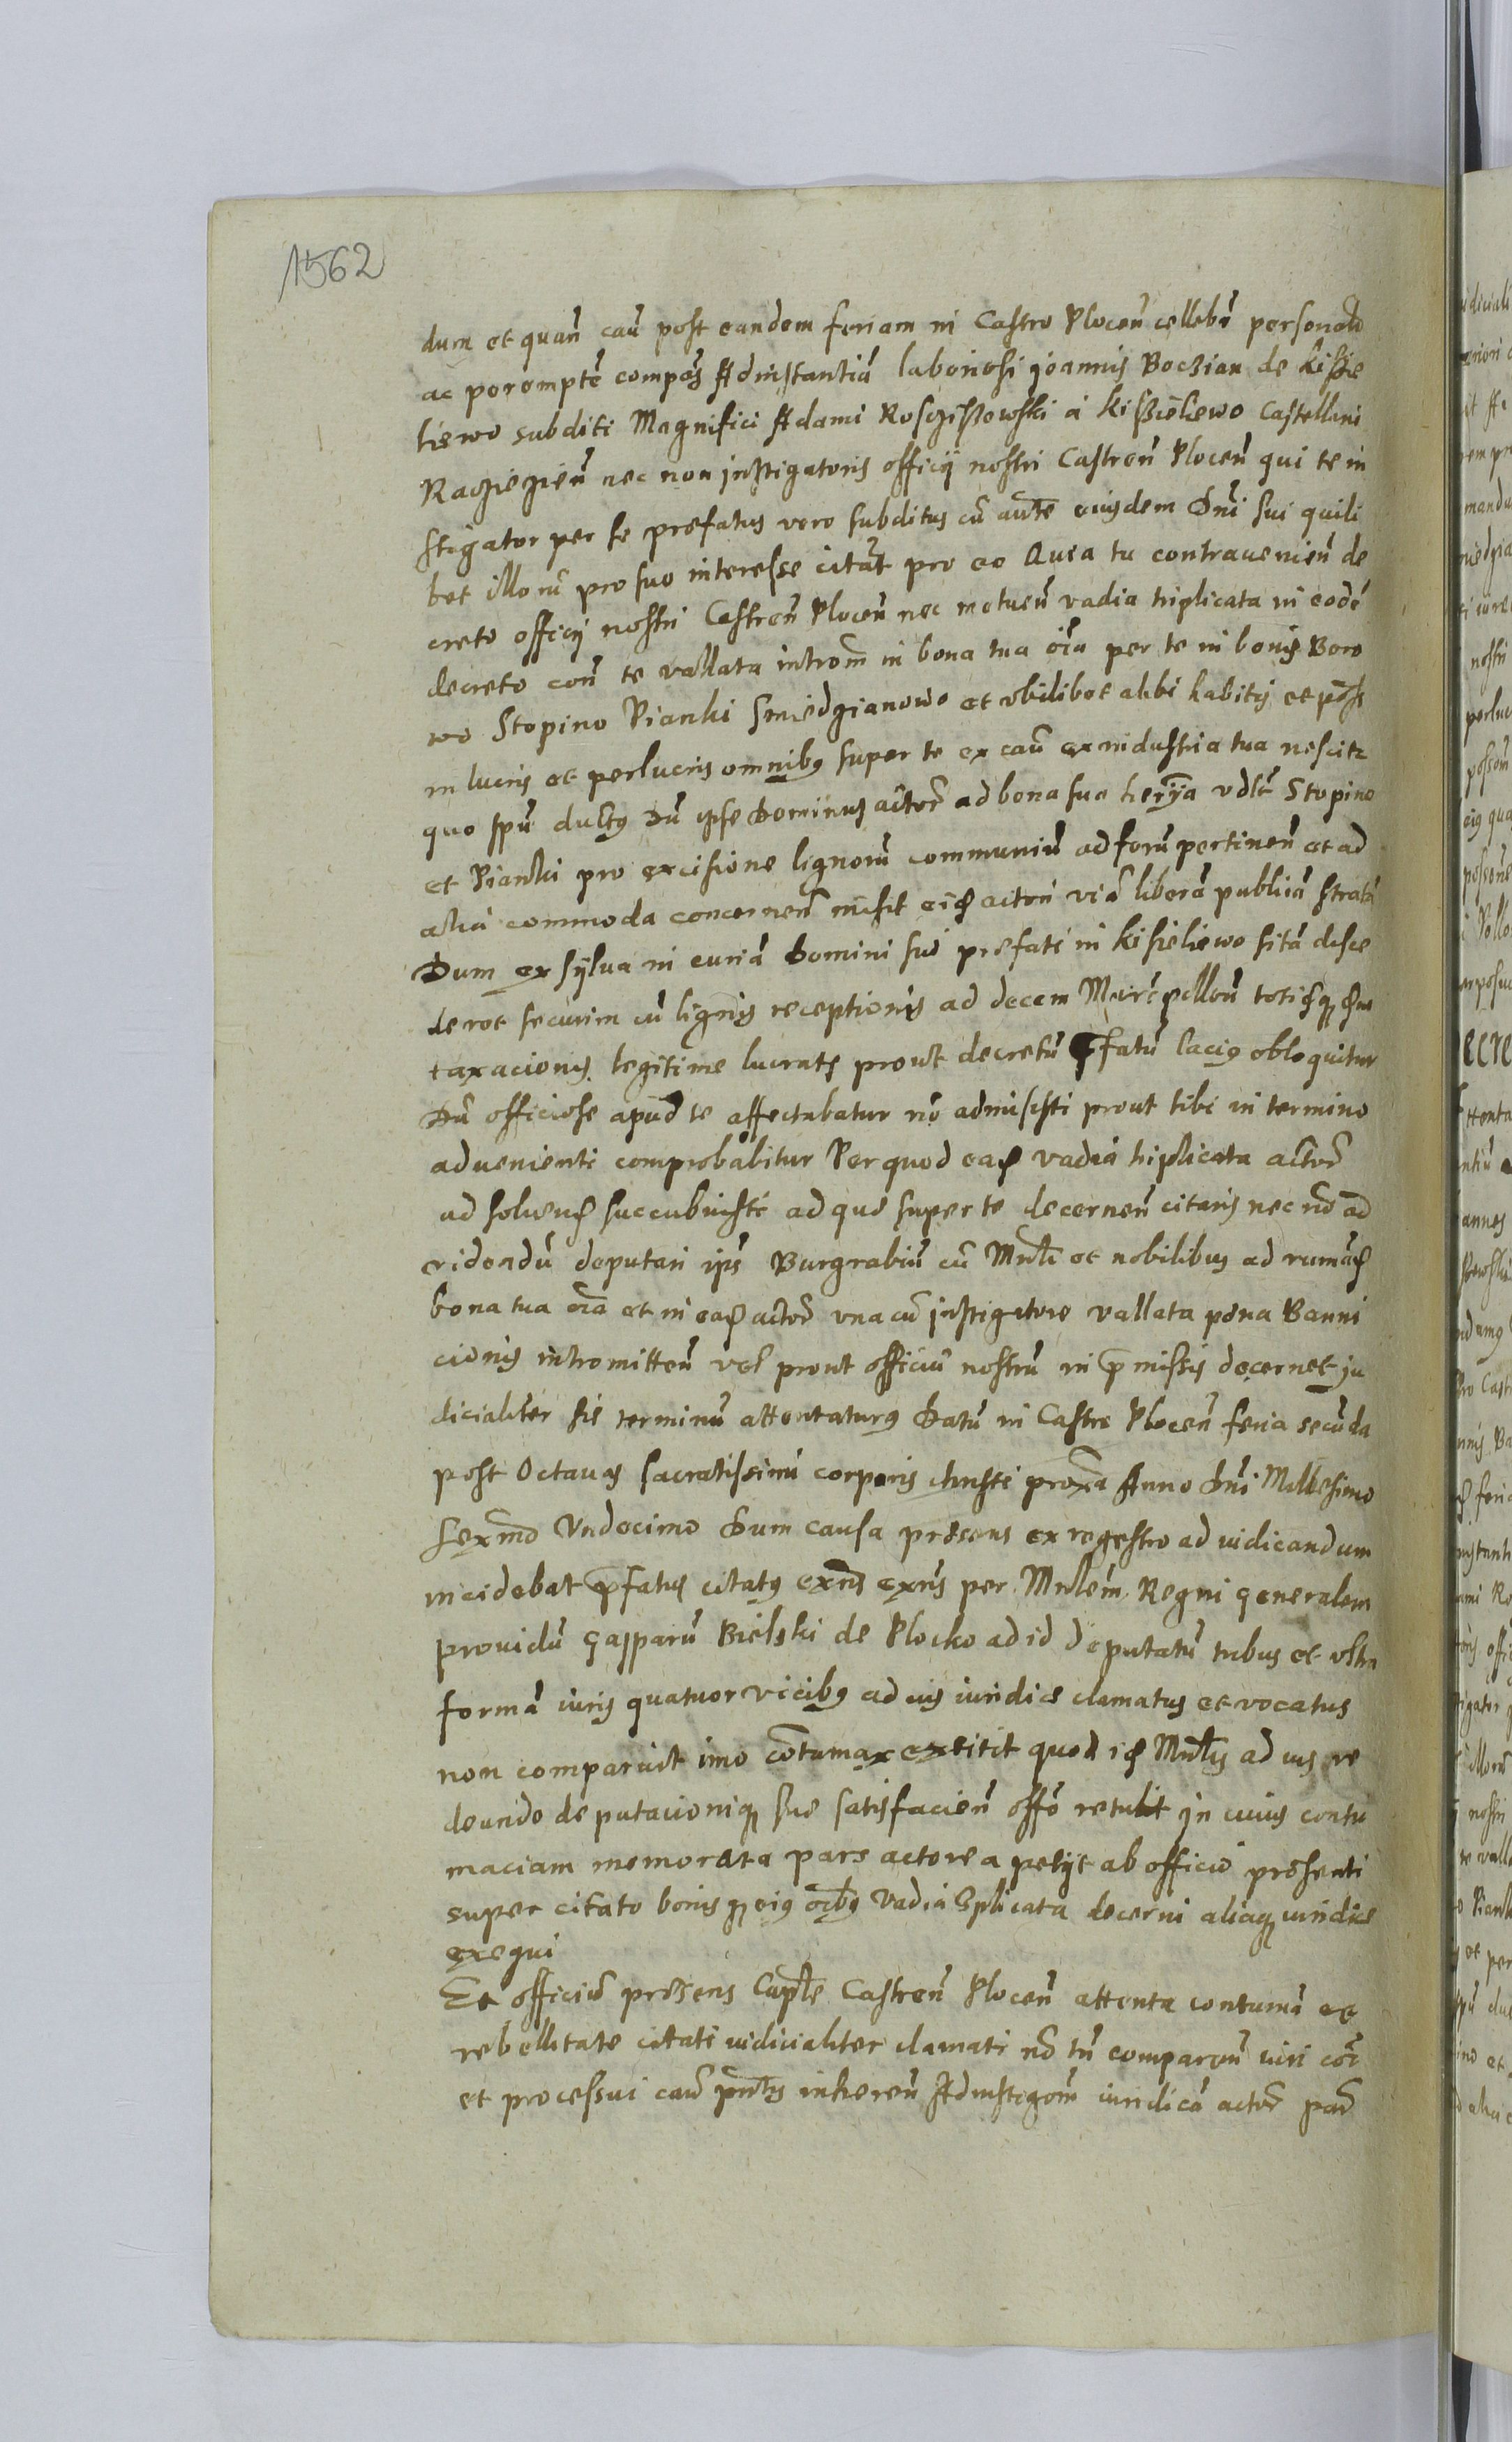 1562
dum et quañ caũ post eandem feriam in Castro Plocen̄ cellebr̃ personalr̃
ac perempte compās Ad instantiā laboriosi joannis Boczian de Kissie
liewo subditi Magnifici Adami Rosciszowski a Kissieliewo Castellani
Raciezien̄ nec non instigatoris officij nostri Castren̄ Plocen̄ qui te in
stigator per se prefatus vero subditus cū aūte eiusdem Dñi sui quili
bet illorū pro suo interesse citāt pro eo Quia tu contravenien̄ de
creto officij nostri Castren̄ Plocen̄ nec metuen̄ vadia triplicata in eodē
decreto con̄ te vallata introm̄ in bona tua oīa per te in bonis Boro
wo Stopino Pianki Smiedzianowo et ubilibet alibi habitis et poss
in lucris et perlucris omnibus super te ex caū ex industria tua nescit
quo spū ductus Dū ipse Dominus actor̃ ad bona sua herr̃ia vdlt̃ Stopino
et Pianki pro excisione lignorū communiū ad forū pertinen̄ et ad
alia commoda concernen̄ misit eid actori viā liberā publicā stratā
Dum ex sylva in curiā Domini sui prefati in Kisieliewo sitā disce
deret securim cū lignis receptionis ad decem Marc̄ pollon̄ totidq suo
taxacionis legitime lucrat prout decretū p̄fatū lacius obloquitur
Dū officiose apud te affectabatur nō admisisti prout tibi in termino
advenienti comprobabitur Per quod ead vadia triplicata actor̃
ad solvend succubuisti ad que super te decernen̄ citaris nec nō ad
videndū deputari ips Burgrabiū cū Mnlī et nobilibus ad rumād
bona tua oīa et in ead actor̃ una cū instigatore vallata pena Banni
cionis intromitten̄ vel prout officiū nostrū in p̄missis decernet ju
dicialiter sis terminū attentaturus Datū in Castro Plocen̄ feria secūda
post Octavas sacratissimi corporis christi proxa Anno Dñi Millesimo
Sexmo Undecimo Dum causa presens ex regestro ad iudicandum
incidebat p̄fatus citatus exñs exñs per Mnlem Regni generalem
providū Gasparū Bielski de Plocko ad id deputatū tribus et ultra
formā iuris quatuor vicibus ad ius iuridice clamatus et vocatus
non comparuit imo cōtumax extitit quod id Mnlis ad ius re
deundo deputacioniq sue satisfacien̄ offō retulit in cuius contu
maciam memorata pars actorea petijt ab officio presenti
super citato bonisq eius oībus vadia 3plicata decerni aliaq iuridice
exequi
Et officiū presens Capt̃le Castren̄ Plocen̄ attenta contumā et
rebellitate citati iudicialiter clamati nō tn̄ comparen̄ iuri cōi
et processui caū pn̄tis inheren̄ Ad instigōm̄ iuridicā actor̃ par̃